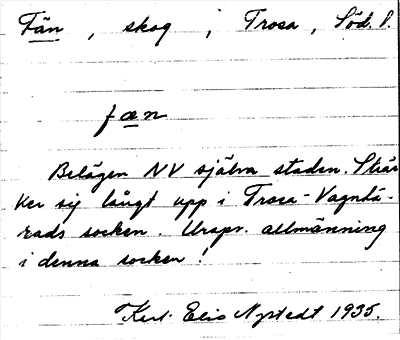 Fän, skog, i Trosa, Söd. l.
fæn
Belägen NV själva staden. Sträc-
ker sig långt upp i Trosa-Vagnhä-
rads socken. Urspr. allmänning
i denna socken!
Kert. Elis Nystedt 1935.